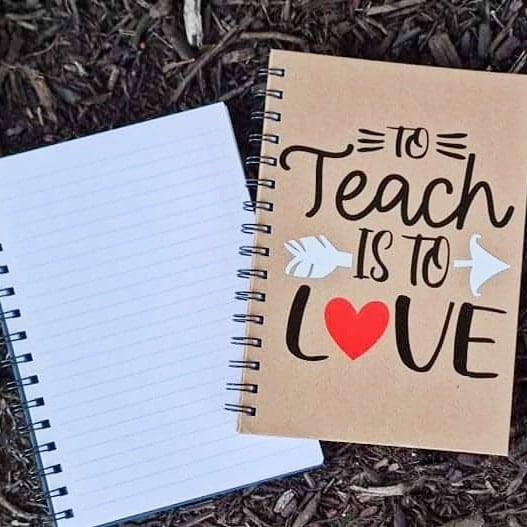 TO
Teach
IS TO
LOVE